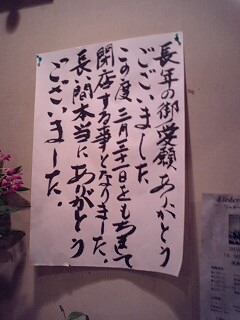 長年の御愛顧ありがとう
ございました
この度三月三十一日をもちまして
閉店する事となりました。
長い間本当にありがとう
ございました。